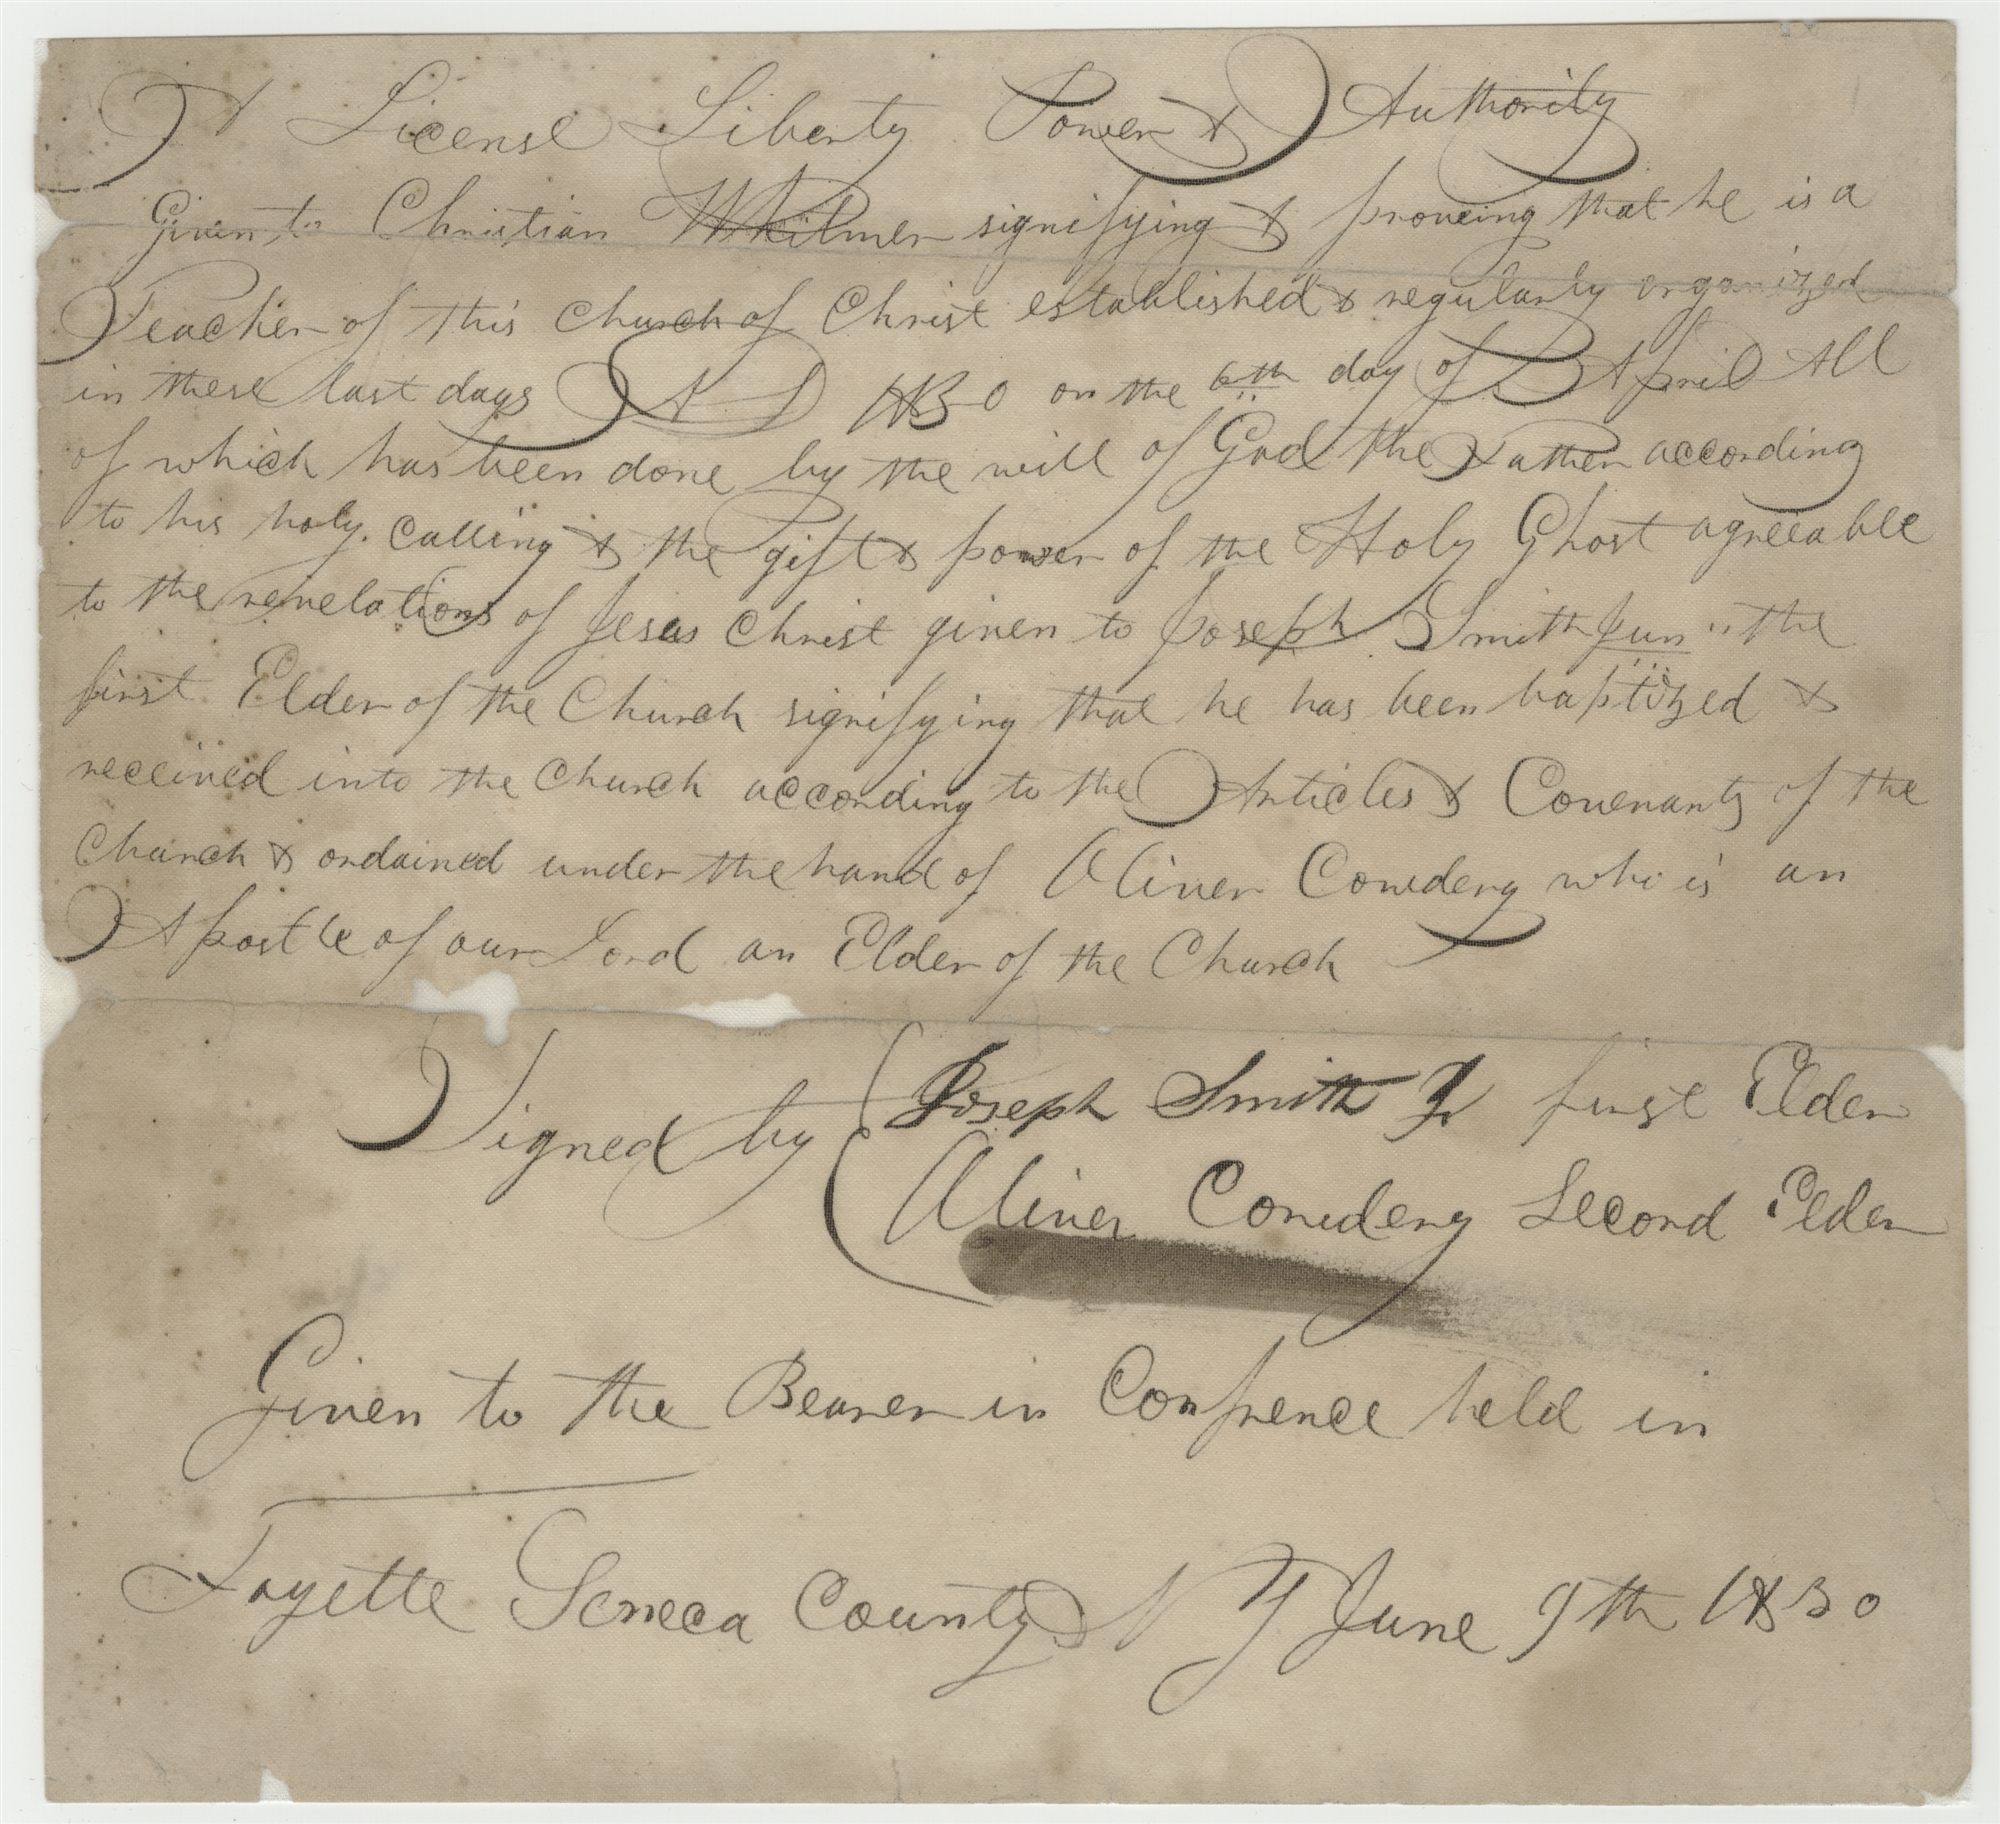 A License Liberty Power & Authority
Given to Christian Whitmer signifying & proveing that he is a
Teacher of this Church of Christ established & regularly organized
in these last days A D 1830 on the 6th day of April All
of which has been done by the will of God the Father according
to his holy calling & the gift & power of the Holy Ghost agreeable
to the revelations of Jesus Christ given to Joseph Smith Jun the
first Elder of the Church signifying that he has been baptized &
received into the Church according to the Articles & Covenants of the
Church & ordained under the hand of Oliver Cowdery who is an
Apostle of our Lord an Elder of the Church
Signed by Joseph Smith Jr first Elder
Oliver Cowdery Second Elder
Given to the Bearer in Confrence held in
Fayette Seneca County N Y June 9th 1830